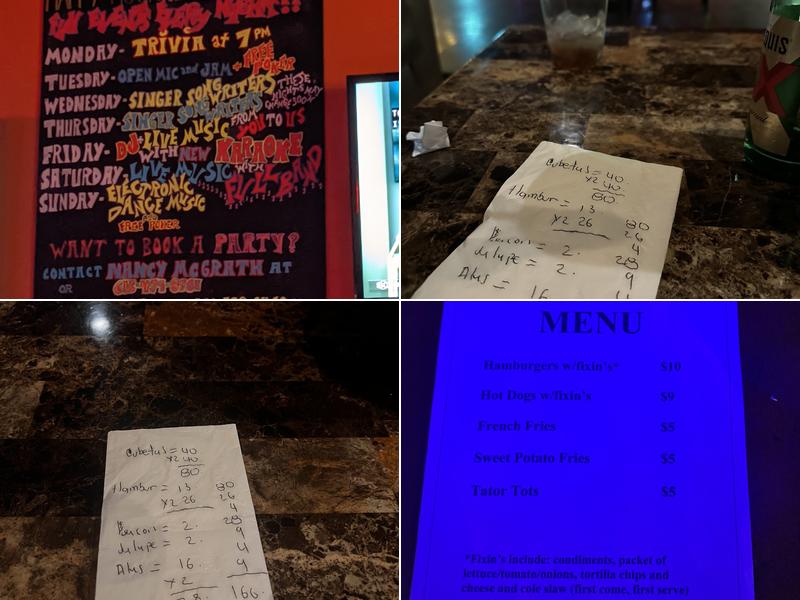 FUN EVENTS EVERY NIGHT!!
MONDAY- TRIVIA at 7PM
TUESDAY- OPEN MIC and JAM + FREE POKER
WEDNESDAY- SINGER SONGWRITERS
THURSDAY- SINGER SONGWRITERS
THESE
NIGHTS MAY
FROM YOU TO US
FRIDAY- DJ + LIVE MUSIC
WITH NEW KARAOKE
SATURDAY- LIVE MUSIC WITH FULL BAND
SUNDAY- ELECTRONIC
DANCE MUSIC
FREE POKER
WANT TO BOOK A PARTY?
CONTACT NANCY MCGRATH AT
OR
UIS
X
cubetas = 40
x2 40
80
Hambur = 13 80
x2 26 26
4
= 2. 28
= 2. 9
Alas = 16
cubetas = 40
x2 40
80
Hambur = 13 80
x2 26 26
4
= 2. 28
= 2. 9
4
Alas = 16. 9
x2
166.
MENU
Hamburgers w/fixin's* $10
Hot Dogs w/fixin's $9
French Fries $5
Sweet Potato Fries $5
Tator Tots $5
*Fixin's include: condiments, packet of
lettuce/tomato/onions, tortilla chips and
cheese and cole slaw (first come, first serve)